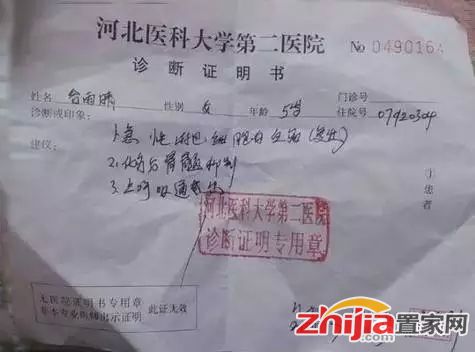 河北医科大学第二医院
No 0490164
诊断证明书
姓名 性别 女 年龄 5岁 门诊号
诊断或印象: 住院号 07420304
1.急性淋巴细胞白血病(复发)
建议:
2.化疗后骨髓抑制
3.上呼吸道感染
①患者
河北医科大学第二医院
诊断证明专用章
无医院证明书专用章
此证无效
zhijia置家网
.com